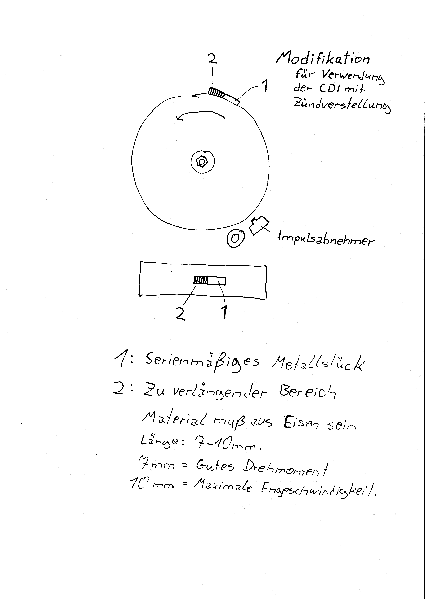 Modifikation
für Verwendung
der CDI mit
Zündverstellung
2
1
Impulsabnehmer
2
1
1: Serienmäßiges Metallstück
2: Zu verlängender Bereich
Material muß aus Eisen sein
Länge: 7-10mm.
7mm = Gutes Drehmoment
10mm = Maximale